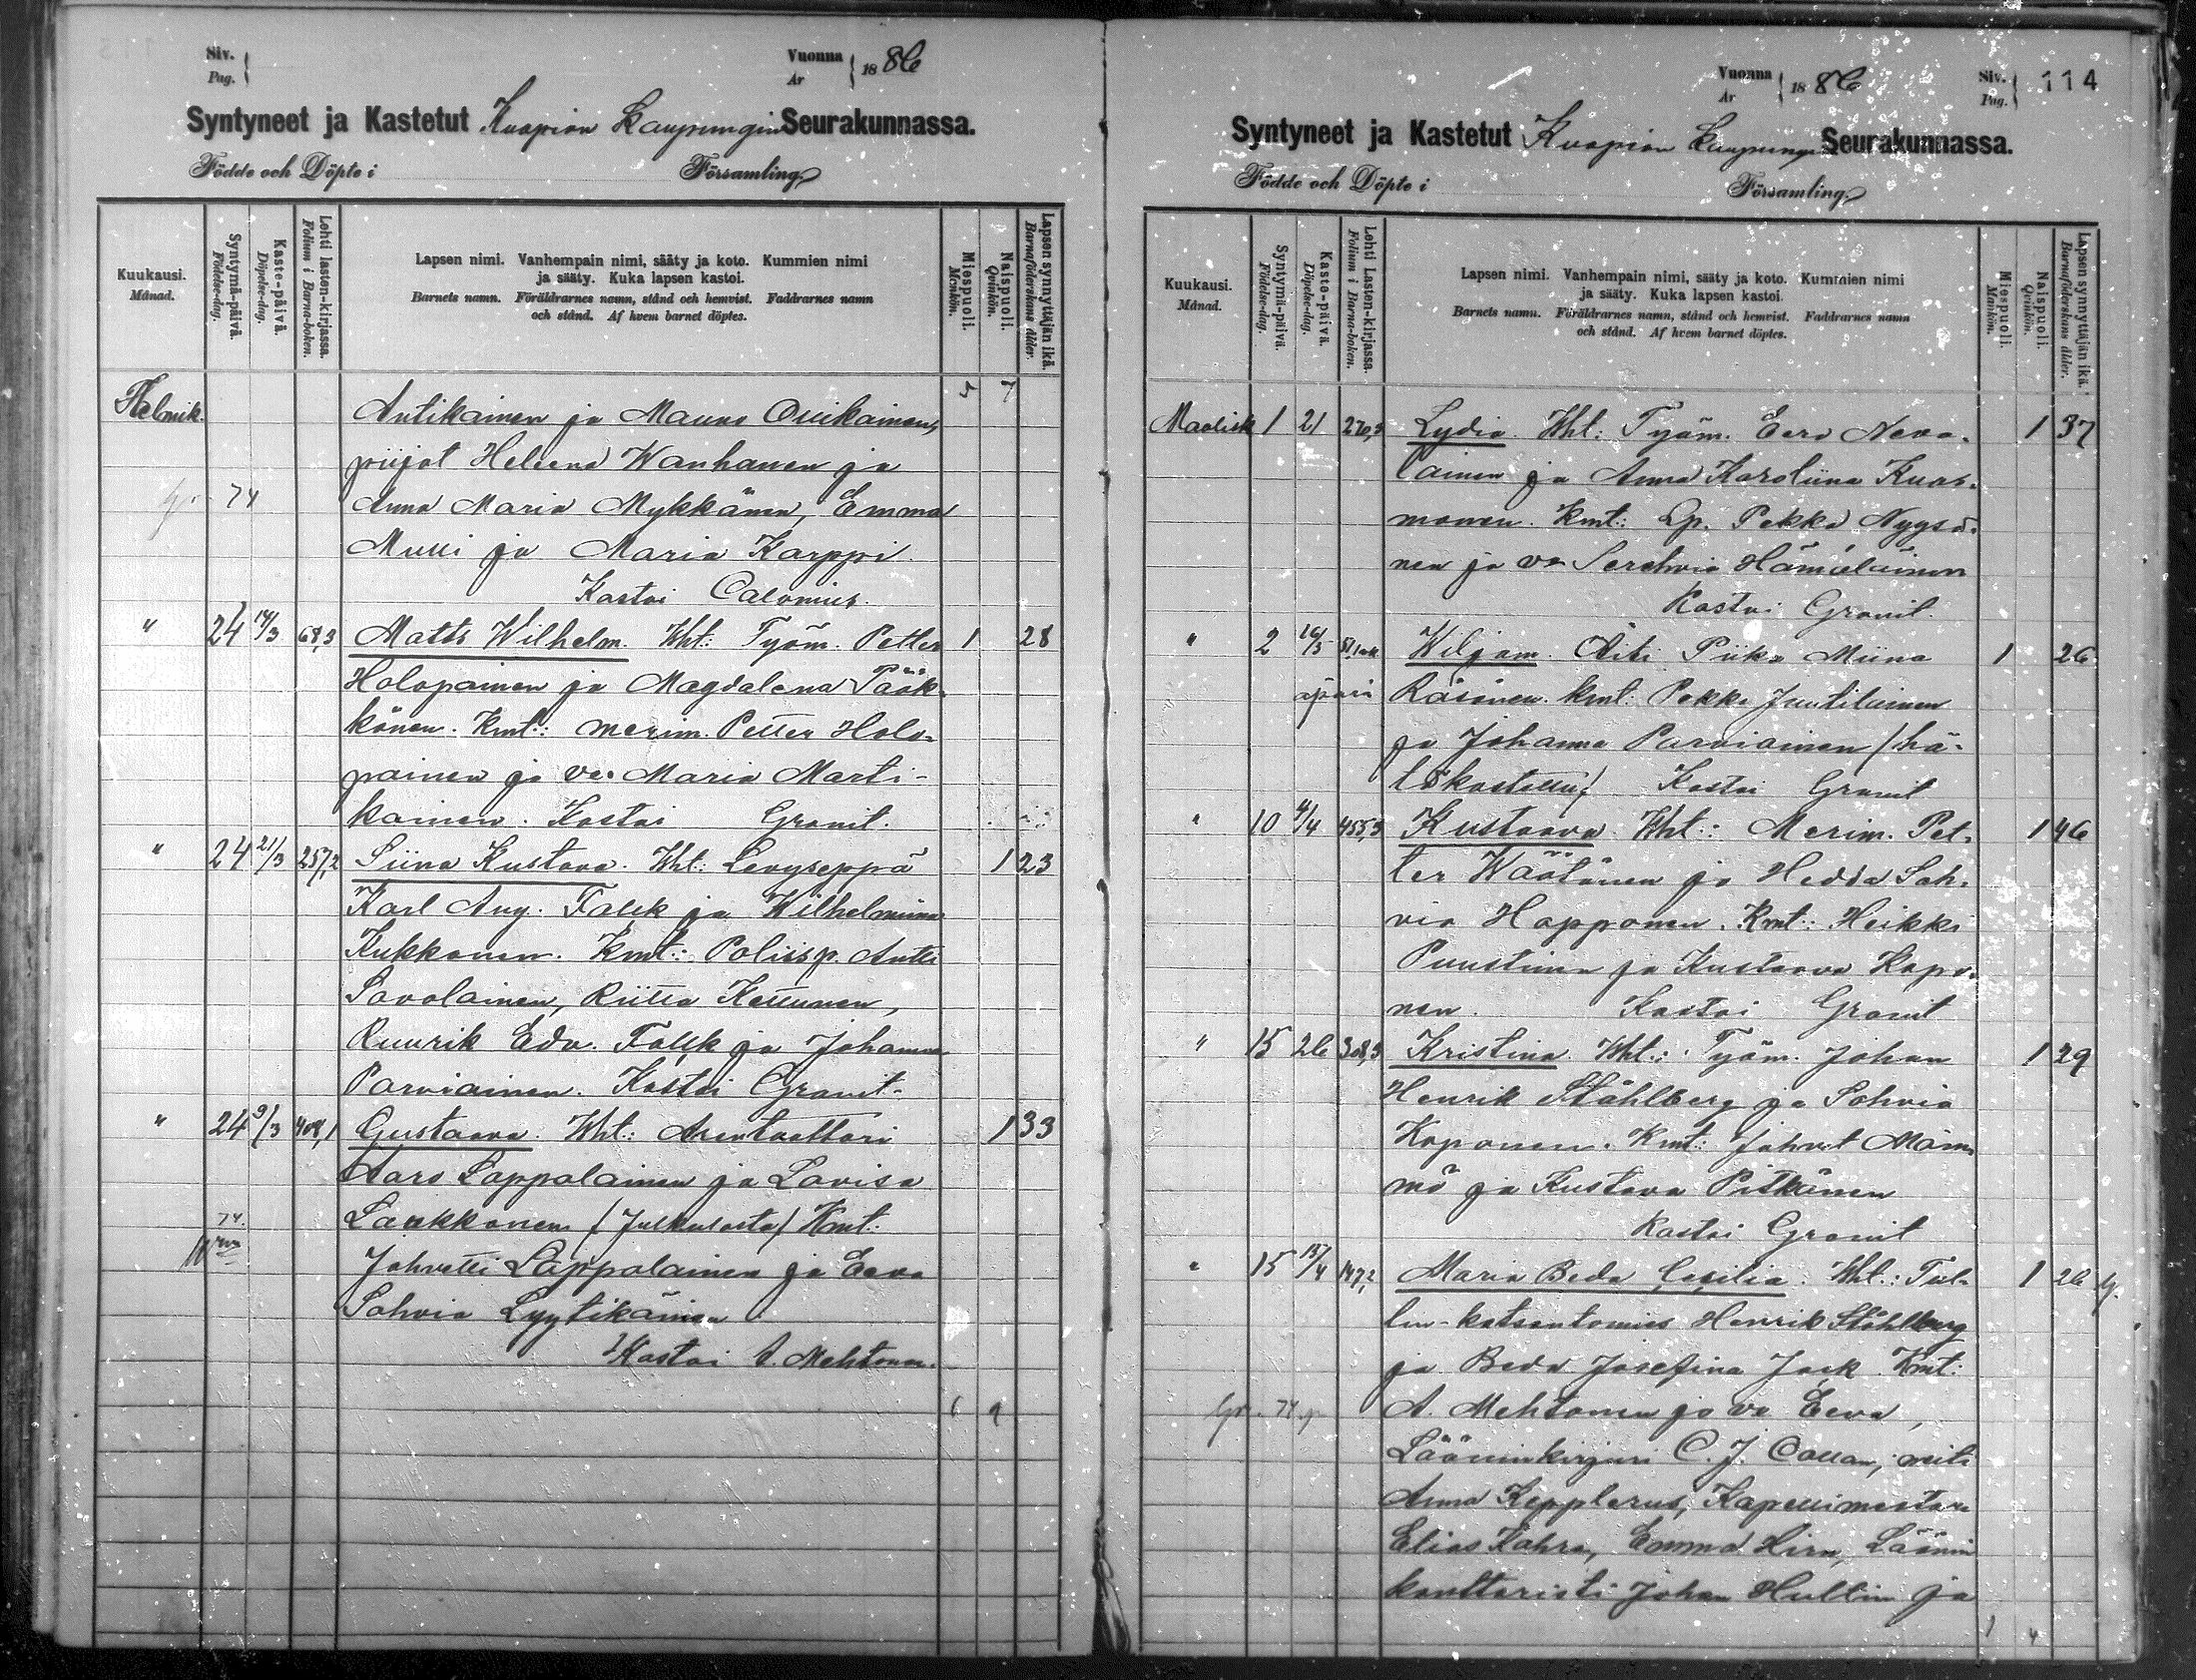 Siv.
Pag.
Vuonna
År
1886
Syntyneet ja Kastetut Kuopion Kaupungin Seurakunnassa.
Födde och Döpte i
Församling.
Kuukausi.
Månad.
Syntymä-päivä.
Födelse-dag.
Kaste-päivä.
Döpelse-dag.
Lehti lasten-kirjassa.
Folium i Barna-boken.
Lapsen nimi. Vanhempain nimi, sääty ja koto. Kummien nimi
ja sääty. Kuka lapsen kastoi.
Barnets namn. Föräldrarnes namn, stånd och hemvist. Faddrarnes namn
och stånd. Af hvem barnet döptes.
Miespuoli.
Mankön.
Naispuoli.
Qvinkön.
Lapsen synnyttäjän ikä.
Barnaföderskans ålder.
Helmik. Antikainen ja Mauno
piijat Heleena Wanhanen ja
Anna Maria Mykkänen, Emma
ja Maria Karppi.
Kastoi Calonius.
" 24 14/3 68,3 Matts Wilhelm. Wht: Työm. Petter 1 28
Holopainen ja Magdalena Pääk-
könen. Kmt: merim. Petter Holo-
painen ja vo Maria Marti-
kainen. Kastoi Granit.
" 24 21/3 257,2 Siina Kustava. Wht: Levyseppä 1 23
Karl Aug. Falck ja Wilhelmiina
Kukkonen. Kmt: Poliisp. Antti
Savolainen, Riitta Kettunen,
Ruurik Edv. Falck ja Johanna
Parviainen. Kastoi Granit.
" 24 9/3 408,1 Gustaava. Wht: Arentvattari 1 33
Aaro Lappalainen ja Lovisa
Laukkanen (Julkulasta) Kmt:
Johvetti Lappalainen ja Eeva
Sohvia Lyytikäinen
Kastoi A. Mehtonen.
Vuonna
År
1886
Siv.
Pag.
114
Syntyneet ja Kastetut Kuopion Kaupungin Seurakunnassa.
Födde och Döpte i
Församling.
Kuukausi.
Månad.
Syntymä-päivä.
Födelse-dag.
Kaste-päivä.
Döpelse-dag.
Lehti Lasten-kirjassa.
Folium i Barna-boken.
Lapsen nimi. Vanhempain nimi, sääty ja koto. Kummien nimi
ja sääty. Kuka lapsen kastoi.
Barnets namn. Föräldrarnes namn, stånd och hemvist. Faddrarnes namn
och stånd. Af hvem barnet döptes.
Miespuoli.
Mankön.
Naispuoli.
Qvinkön.
Lapsen synnyttäjän ikä.
Barnaföderskans ålder.
Maalisk 1 21 270,3 Lydia. Wht: Työm. Eero Neva- 1 37
lainen ja Anna Karoliina Kuos-
manen. Kmt: Lp. Pekka Nygså-
nen ja vo Hämäläinen
Kastoi Granit.
" 2 Wiljam. Äiti Piika Miina 1 26
äpärä Räsänen. Kmt: Pekka Juutilainen
ja Johanna Parviainen (hä-
täkastettu) Kastoi Granit
" 10 4/4 455,3 Kustaava. Wht: Merim. Pet- 1 46
ter Wäätänen ja Hedda Soh-
via Happonen. Kmt: Heikki
Puustinen ja Kustaava Kapo-
nen. Kastoi Granit
" 15 26 308,3 Kristina. Wht: Työm. Johan 1 29
Henrik Ståhlberg ja Sohvia
Koponen. Kmt: Johvet Mäm-
mö ja Kustava Pitkänen
Kastoi Granit
" 15 15/4 147,2 Maria Beda Cecilia. Wht: Tul- 1 26
lin-katsantomies Henrik Ståhlberg
ja Beda Josefina Jack Kmt:
A. Mehtonen ja vo Eeva,
Lääninkirjuri C. J. Collan, neiti
Anna Kepplerus, Kapellimestari
Elias Kahra, Emma Hirn, Läänin
konttoristi Johan Hultin ja